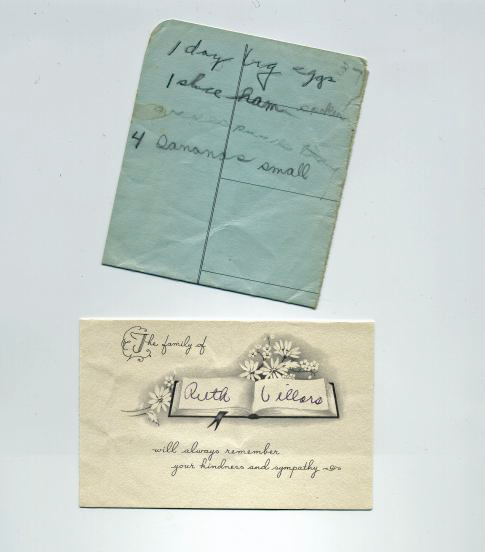 1 doz lrg eggs
1 slice ham
4 Bananas small
The family of
Ruth Villars
will always remember
your kindness and sympathy